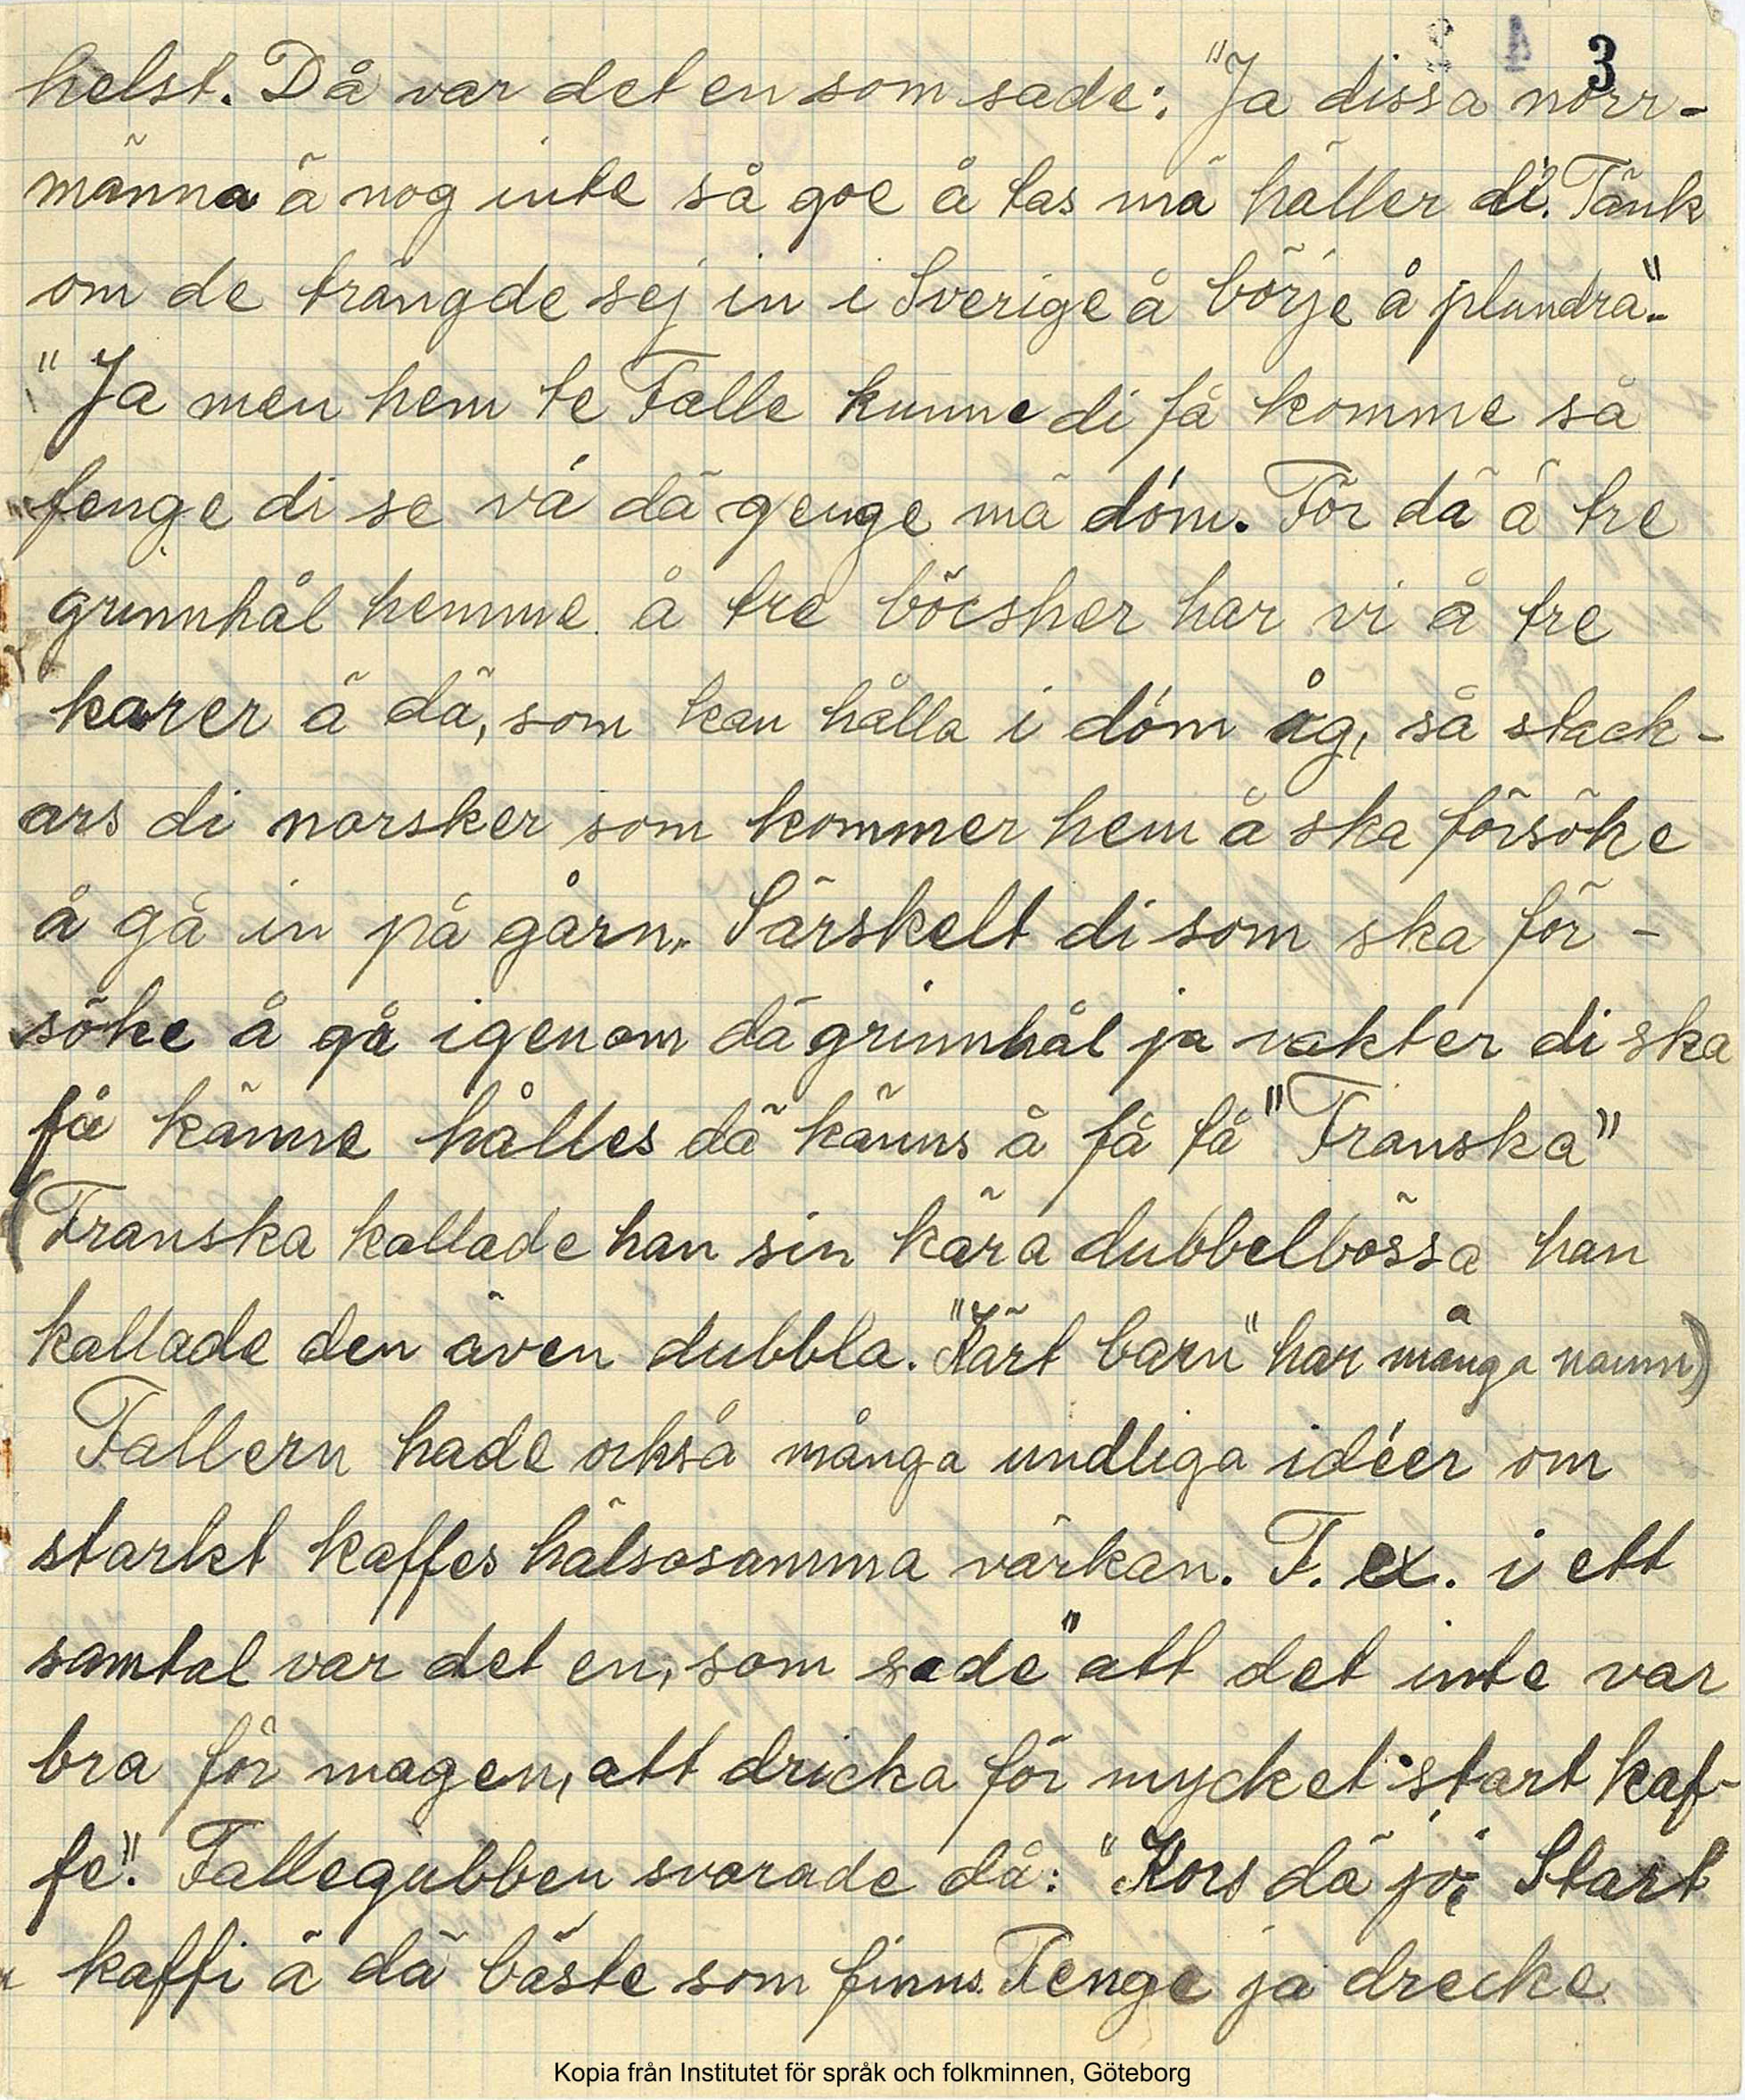 3
helst. Då var det en som sade: "Ja dissa norr-
männa ä nog inte så goe å tas mä häller di. Tänk
om de trängde sej in i Sverige å börje å plundra."
"Ja men hem te Falle kunne di få komme så
fenge di se vá dä genge mä döm. För dä ä tre
grinnhål hemme å tre böcsher har vi å tre
karer ä dä, som kan hålla i döm åg, så stack-
ars di norsker som kommer hem å ska försöke
å gå in på gårn. Särskelt di som ska för-
söke å gå igenom dä grinnhål ja vakter di ska
få känne hålles dä känns å få få "Franska"
(Franska kallade han sin kära dubbelbössa han
kallade den även dubbla. "Kärt barn" har många namn)
Fallern hade också många undliga idéer om
starkt kaffes hälsosamma värkan. T. ex. i ett
samtal var det en, som sade "att det inte var
bra för magen, att dricka för mycket start kaf-
fe". Fallegubben svarade då: "Kors dä jö; Start
kaffi ä dä bäste som finns. Fenge ja drecke
Kopia från Institutet för språk och folkminnen, Göteborg